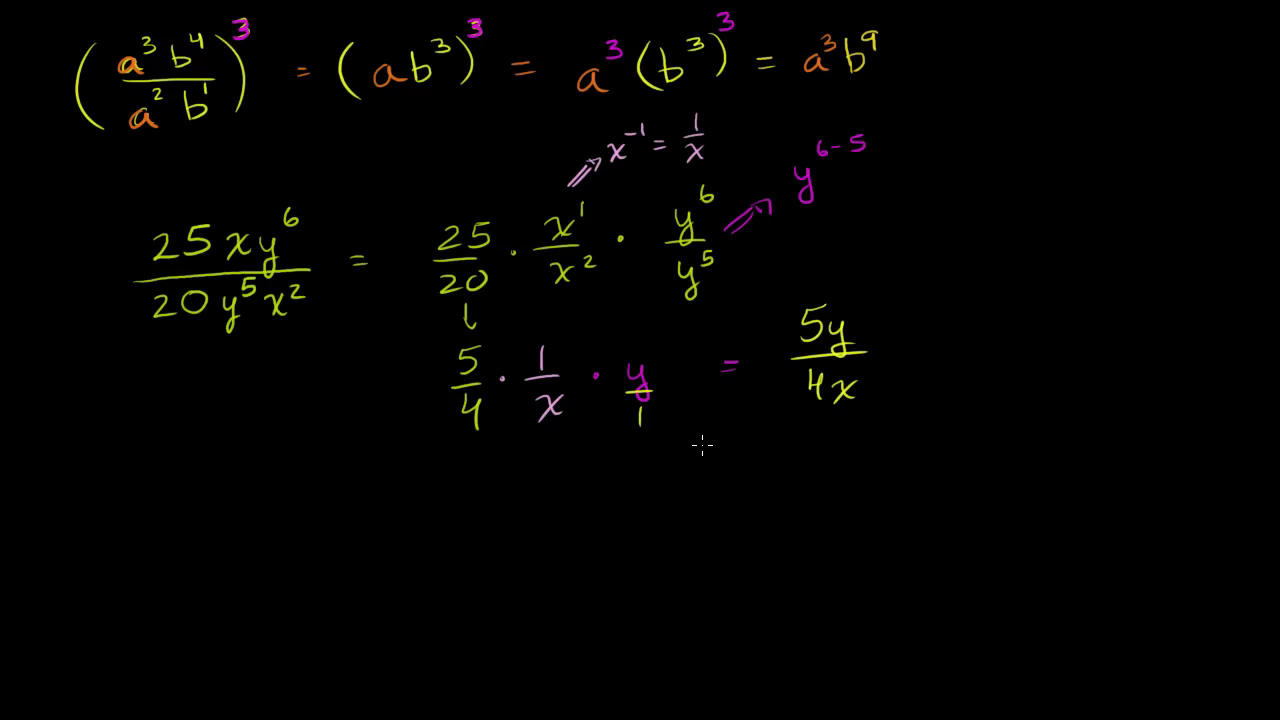 (a³b⁴/a²b¹)³ = (ab³)³ = a³(b³)³ = a³b⁹
x⁻¹ = 1/x
y⁶⁻⁵
25xy⁶/20y⁵x² = 25/20 · x¹/x² · y⁶/y⁵
5/4 · 1/x · y/1 = 5y/4x